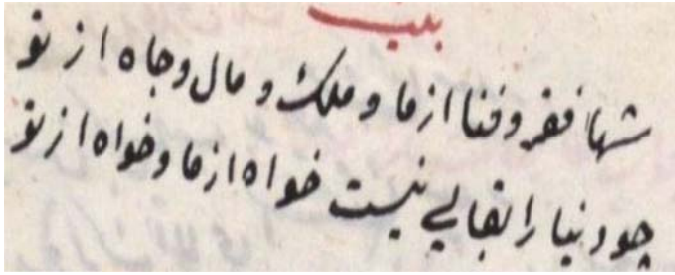 بیت
شها فقر و فنا از ما و ملک و مال و جاه از تو
چو دنیا را بقایی نیست خواه از ما و خواه از تو